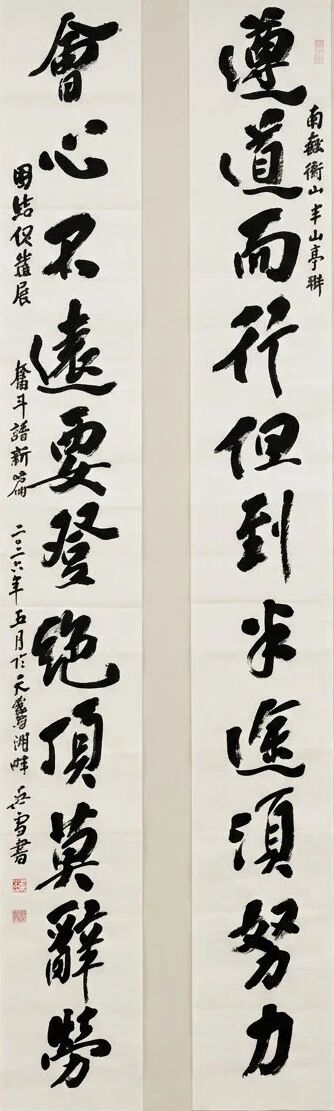 南嶽衡山半山亭聯
遵道而行但到半途須努力
會心不遠要登絕頂莫辭勞
團結促發展 奮斗譜新篇 二〇二六年五月於天鵝湖畔 雪書